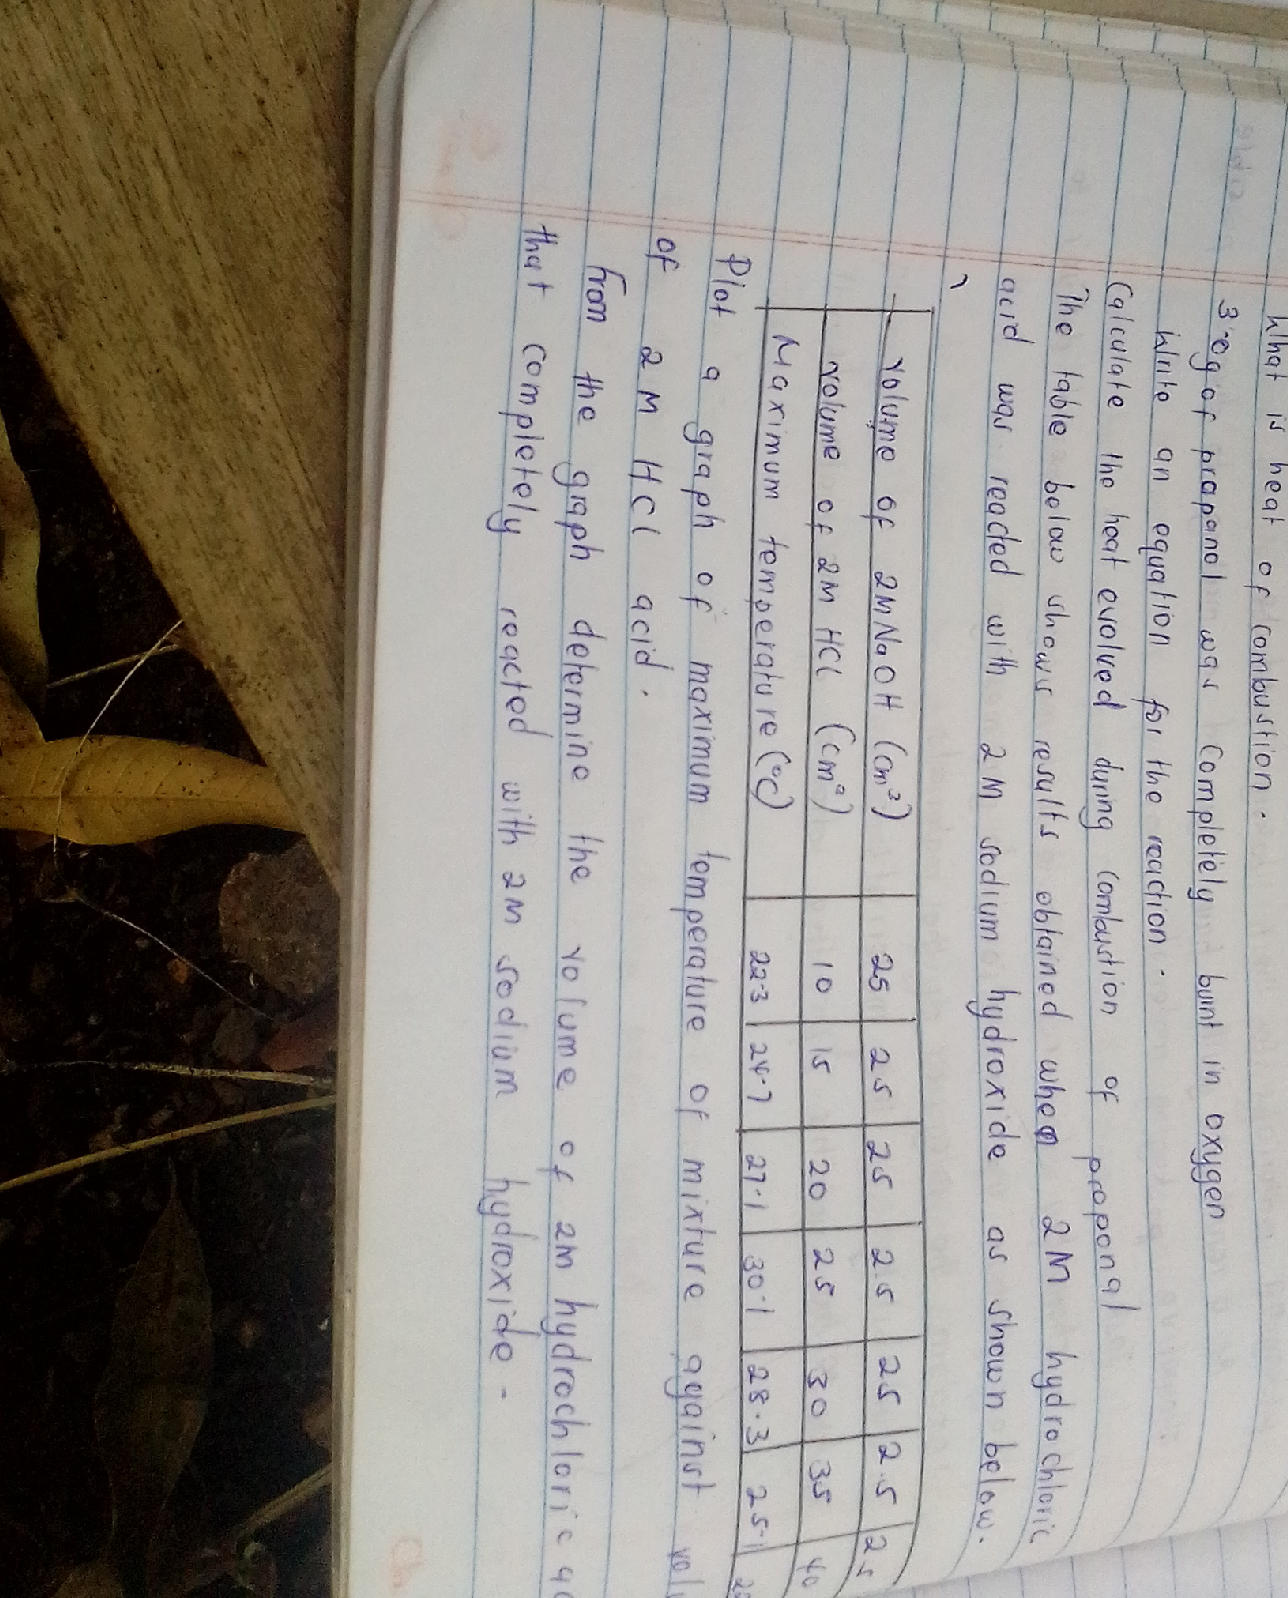 What is heat of combustion.
3.0g of propanol was completely burnt in oxygen
Write an equation for the reaction.
Calculate the heat evolved during combustion of propanol
The table below shows results obtained when 2M hydrochloric
acid was reacted with 2M sodium hydroxide as shown below.
Volume of 2M NaOH (cm³) 25 25 25 25 25 25 25
Volume of 2M HCl (cm³) 10 15 20 25 30 35 40
Maximum temperature (°C) 22.3 24.7 27.1 30.1 28.3 25.1
Plot a graph of maximum temperature of mixture against
of 2M HCl acid.
from the graph determine the volume of 2M hydrochloric
that completely reacted with 2M sodium hydroxide.